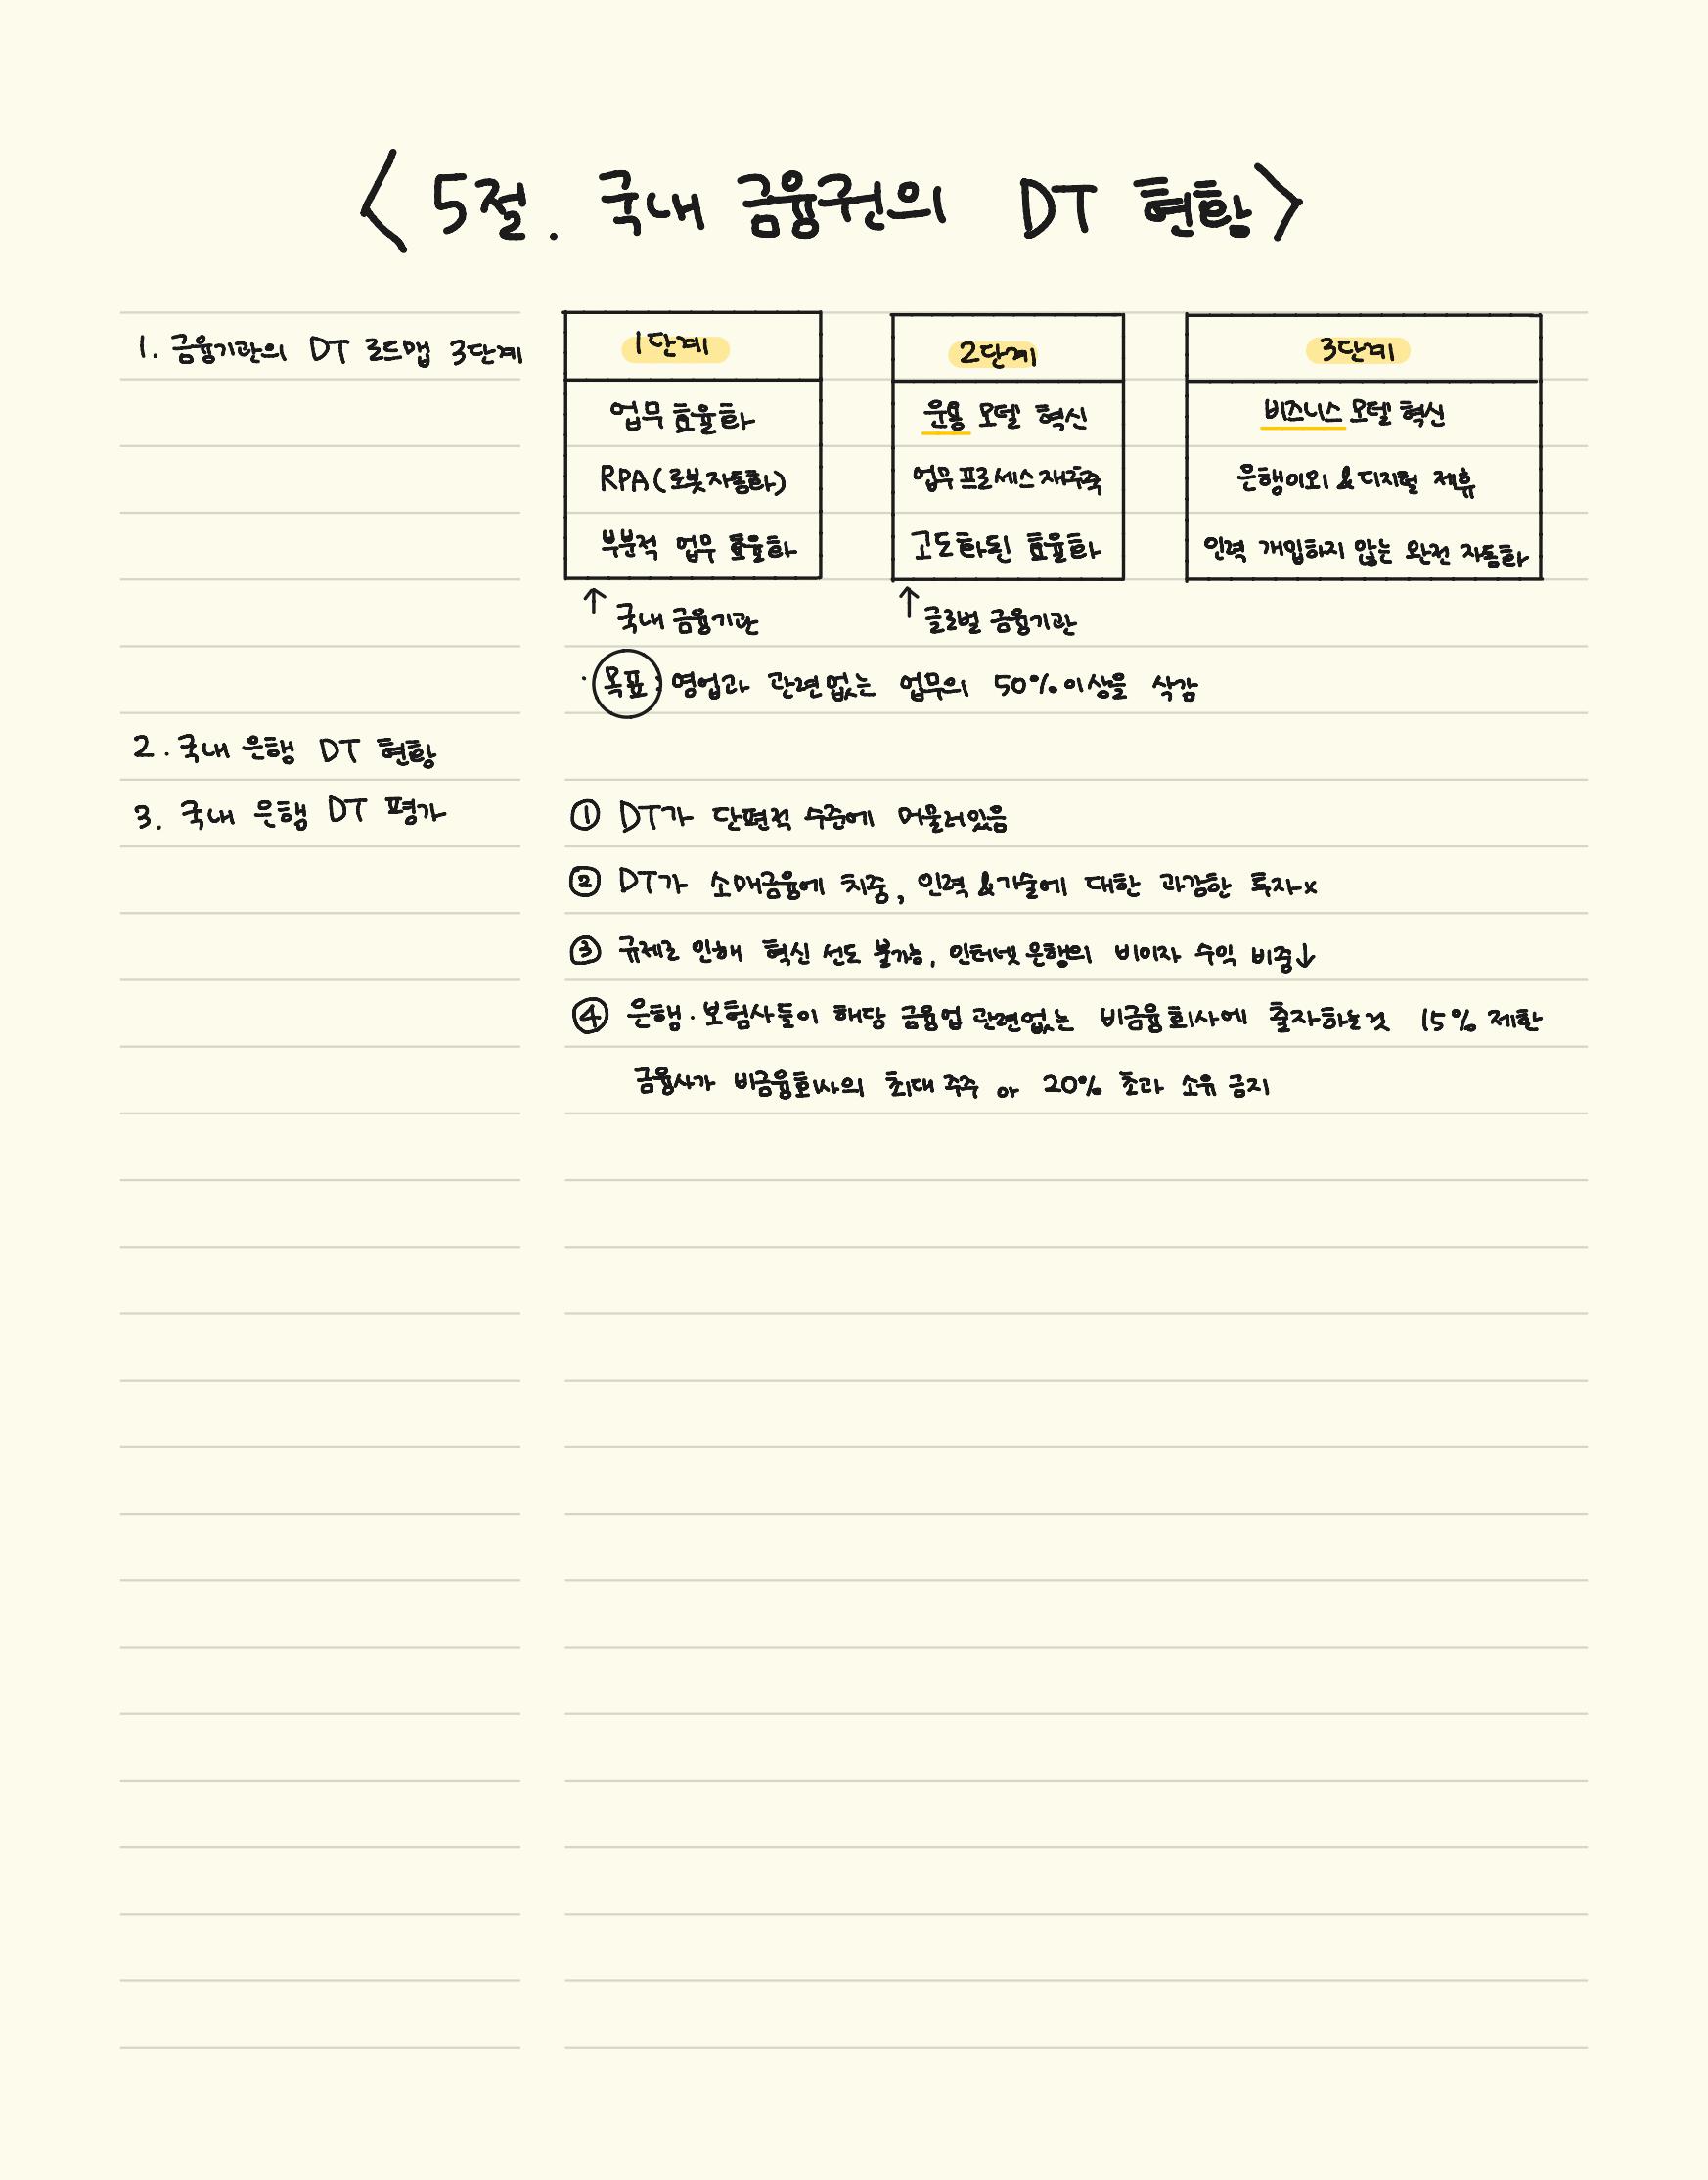 <5절. 국내 금융권의 DT 현황>
1. 금융기관의 DT 로드맵 3단계
1단계
업무 효율화
RPA(로봇자동화)
부분적 업무 효율화
2단계
운용 모델 혁신
업무 프로세스 재구축
고도화된 효율화
3단계
비즈니스 모델 혁신
은행이외 & 디지털 제휴
인력 개입하지 않는 완전 자동화
↑ 국내 금융기관
↑ 글로벌 금융기관
· 목표: 영업과 관련없는 업무의 50%이상을 삭감
2. 국내 은행 DT 현황
3. 국내 은행 DT 평가
① DT가 단편적 수준에 머물러있음
② DT가 소매금융에 치중, 인력&기술에 대한 과감한 투자x
③ 규제로 인해 혁신 선도 불가능, 인터넷은행의 비이자 수익 비중↓
④ 은행·보험사들이 해당 금융업 관련없는 비금융회사에 출자하는것 15% 제한
금융사가 비금융회사의 최대 주주 or 20% 초과 소유 금지